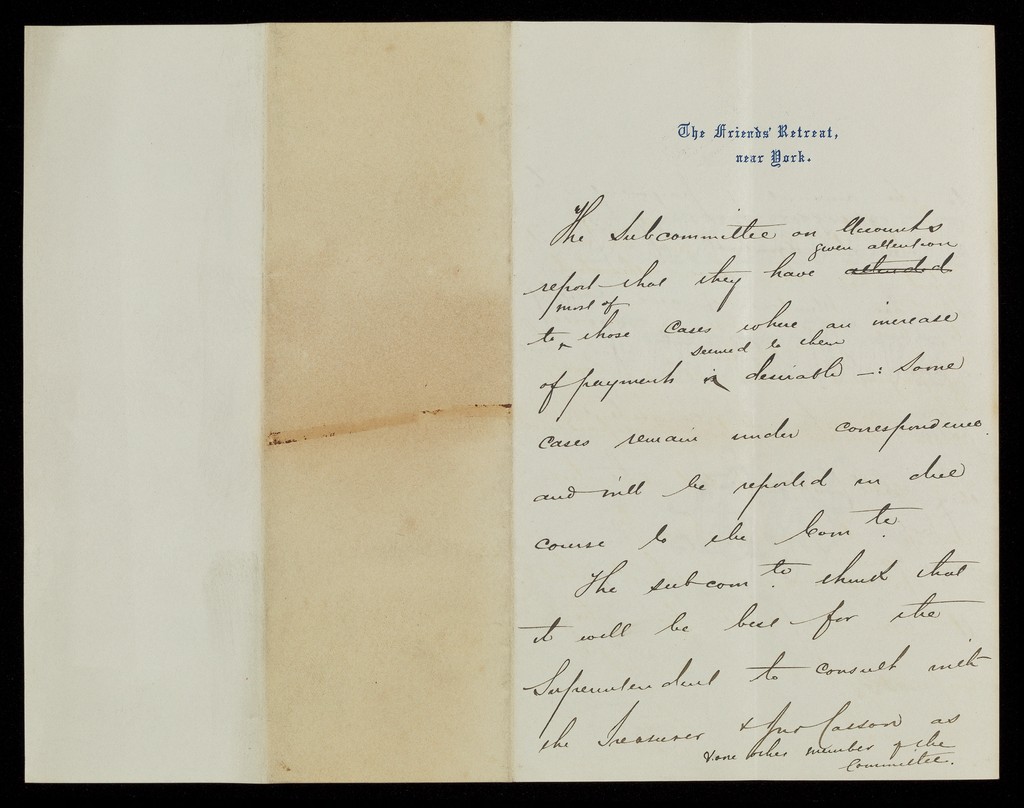 The Friends' Retreat,
near York.
The Subcommittee on Accounts
given attention
report that they have attended
most of
to those cases where an increase
seemed to them
of payments is desirable —: Some
cases remain under correspondence
and will be reported in due
course to the Com te.
The subcom te. think that
it will be best for the
Superintendent to consult with
the Treasurer & Jno Casson as
& one other member of the
Committee.